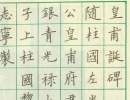 皇甫誕碑
隨柱國左
公皇甫府
銀青光祿
子上柱國
志寧製